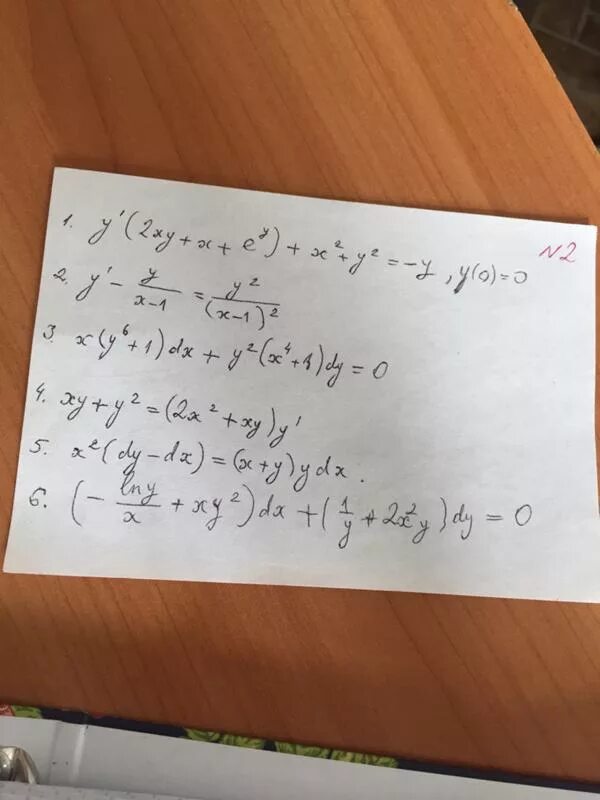 N2
1. y'(2xy + x + e^y) + x² + y² = -y, y(0) = 0
2. y' - y/(x-1) = y²/(x-1)²
3. x(y⁶+1)dx + y²(x⁴+1)dy = 0
4. xy + y² = (2x² + xy)y'
5. x²(dy - dx) = (x+y)y dx.
6. (- ln y/x + xy²)dx + (1/y + 2x²y)dy = 0